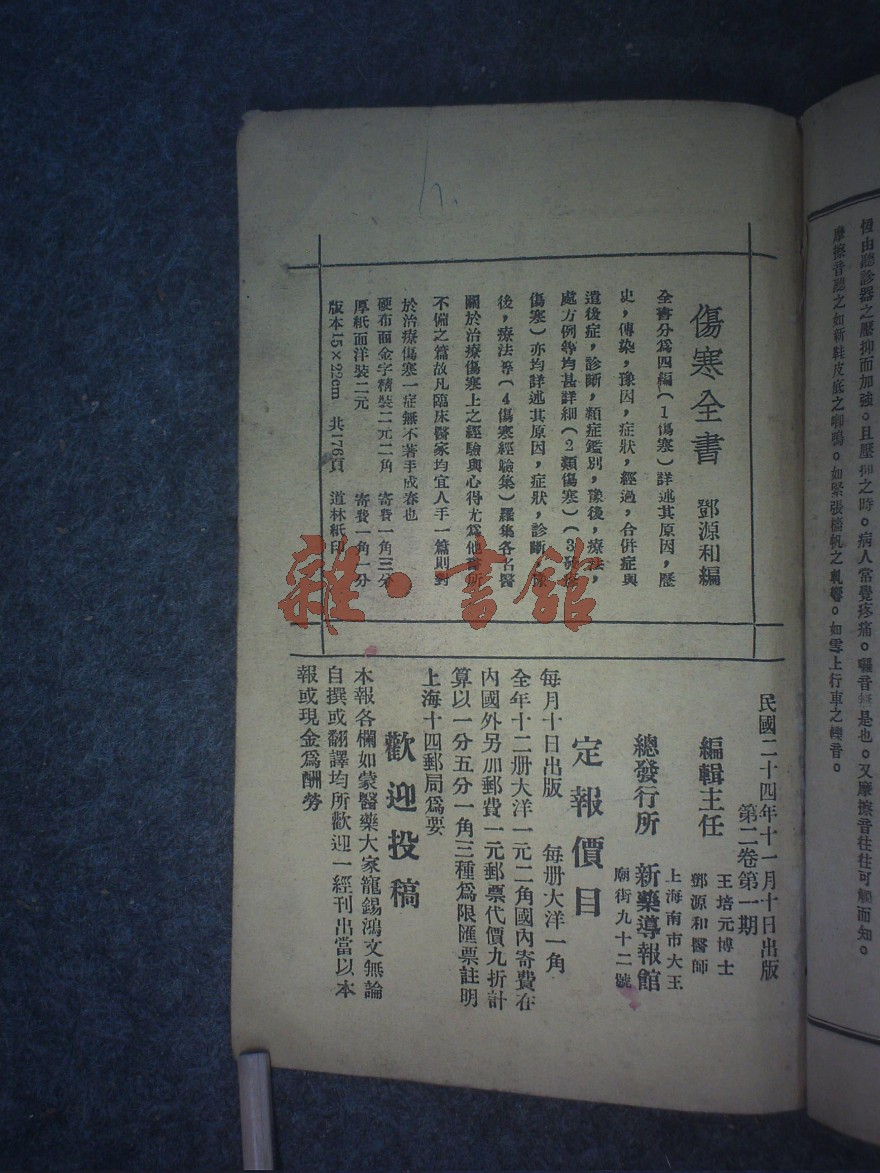 但由聽診器之壓抑而加強。且壓抑之時。病人常覺疼痛。囉音無是也。又摩擦音往往可觸而知。
摩擦音聽之如新鞋皮底之唧鳴。如緊張檣帆之軋響。如雪上行車之轢音。
傷寒全書 鄧源和編
全書分爲四編(1傷寒)詳述其原因,歷
史,傳染,豫因,症狀,經過,合併症與
遺後症,診斷,類症鑑別,豫後,療法,
處方例等均甚詳細(2類傷寒)(3
傷寒)亦均詳述其原因,症狀,診斷,豫
後,療法等(4傷寒經驗集)羅集各名醫
關於治療傷寒上之經驗與心得尤爲他書所
不備之篇故凡臨床醫家均宜人手一篇則對
於治療傷寒一症無不著手成春也
硬布面金字精裝二元二角 寄費一角三分
厚紙面洋裝二元 寄費一角一分
版本15×22cm 共176頁 道林紙印
民國二十四年十一月十日出版
第二卷第一期
編輯主任 王培元博士
鄧源和醫師
總發行所 新藥導報館
上海南市大王
廟街九十二號
定報價目
每月十日出版 每册大洋一角
全年十二册大洋一元二角國內寄費在
內國外另加郵費一元郵票代價九折計
算以一分五分一角三種爲限匯票註明
上海十四郵局爲要
歡迎投稿
本報各欄如蒙醫藥大家寵錫鴻文無論
自撰或翻譯均所歡迎一經刊出當以本
報或現金爲酬勞
雜·書館